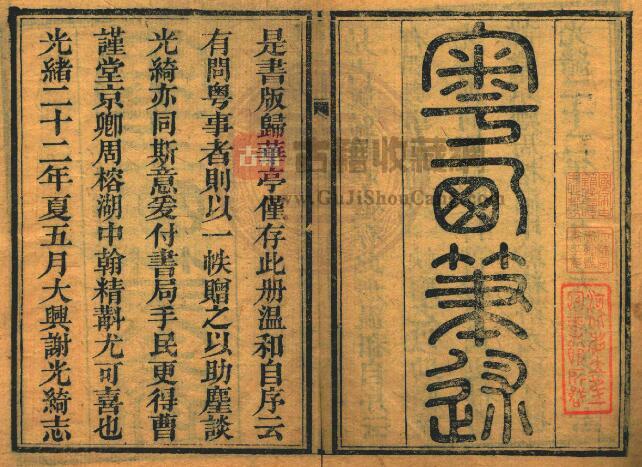 粵西筆述
是書版歸華亭僅存此册溫和自序云
有問粵事者則以一帙贈之以助塵談
光綺亦同斯意爰付書局手民更得曹
謹堂京卿周榕湖中翰精斠尤可喜也
光緒二十二年夏五月大興謝光綺志
古籍收藏
www.GuJiShouCang.com